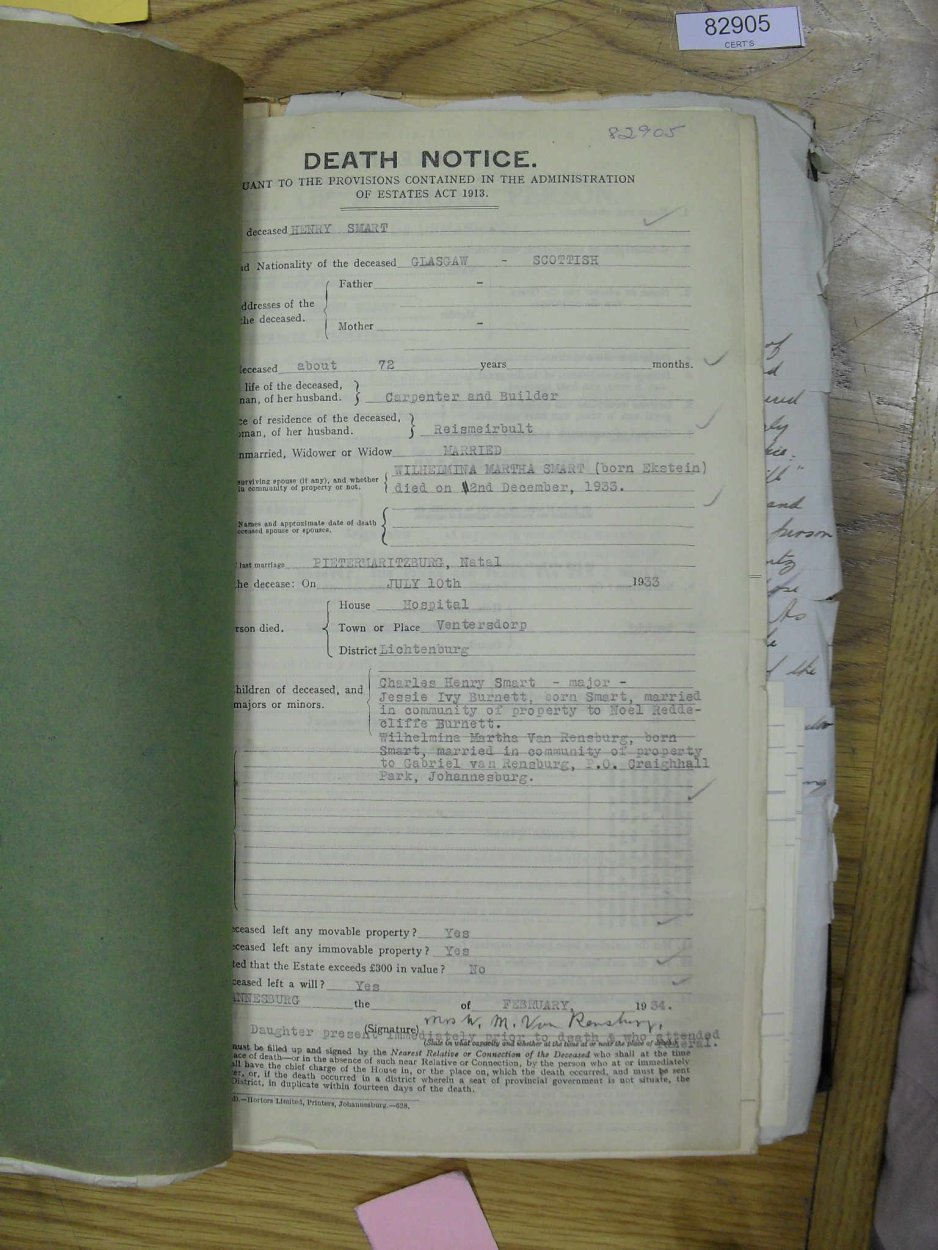 82905
CERT'S
82905
DEATH NOTICE.
UANT TO THE PROVISIONS CONTAINED IN THE ADMINISTRATION
OF ESTATES ACT 1913.
deceased HENRY SMART
nd Nationality of the deceased GLASGAW - SCOTTISH
Father -
ddresses of the
he deceased.
Mother -
deceased about 72 years months.
life of the deceased,
man, of her husband. Carpenter and Builder
ce of residence of the deceased,
oman, of her husband. Reismeirbult
nmarried, Widower or Widow MARRIED
WILHELMINA MARTHA SMART (born Ekstein)
surviving spouse (if any), and whether
in community of property or not. died on 2nd December, 1933.
Names and approximate date of death
eceased spouse or spouses.
last marriage PIETERMARITZBURG, Natal
he decease: On JULY 10th 1933
House Hospital
rson died. Town or Place Ventersdorp
District Lichtenburg
hildren of deceased, and Charles Henry Smart - major -
majors or minors. Jessie Ivy Burnett, born Smart, married
in community of property to Noel Redde-
cliffe Burnett.
Wilhelmina Martha Van Rensburg, born
Smart, married in community of property
to Gabriel van Rensburg, P.O. Craighhall
Park, Johannesburg.
eceased left any movable property? Yes
eceased left any immovable property? Yes
ted that the Estate exceeds £300 in value? No
ceased left a will? Yes
ANNESBURG the of FEBRUARY, 1934.
(Signature) Mrs W. M. Van Rensburg.
Daughter present immediately prior to death & who attended
(State in what capacity and whether at the time at or near the place of death)
must be filled up and signed by the Nearest Relative or Connection of the Deceased who shall at the time
ace of death—or in the absence of such near Relative or Connection, by the person who at or immediately
all have the chief charge of the House in, or the place on, which the death occurred, and must be sent
er, or, if the death occurred in a district wherein a seat of provincial government is not situate, the
District, in duplicate within fourteen days of the death.
—Hortors Limited, Printers, Johannesburg.—628.
of
and
person
As
the